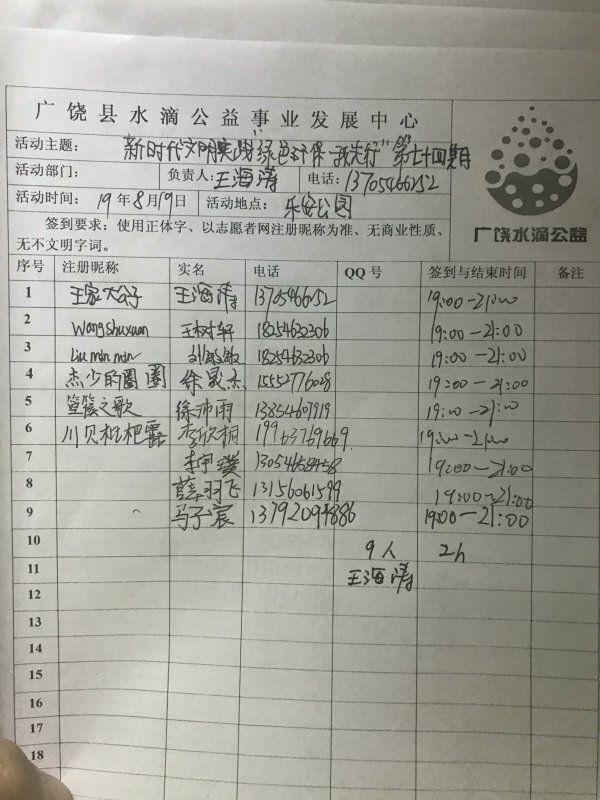 广饶县水滴公益事业发展中心
活动主题： 新时代文明实践"绿色环保 我先行"第七十四期
活动部门： 负责人：王海涛 电话：13705466252
活动时间：19年8月19日 活动地点：乐安公园
签到要求：使用正体字、以志愿者网注册昵称为准、无商业性质、
无不文明字词。
广饶水滴公益
序号 注册昵称 实名 电话 QQ号 签到与结束时间 备注
1 王家大公子 王海涛 13705466252 19:00-21:00
2 Wangshuxuan 王树轩 18254632306 19:00-21:00
3 Liu min min 刘敏敏 18254632306 19:00-21:00
4 杰少的圈圈 徐晟杰 15552776028 19:00-21:00
5 箜篌之歌 徐沛雨 13854607919 19:00-21:00
6 川贝枇杷露 李欣桐 19963769669 19:00-21:00
7 李宇璞 13054658458 19:00-21:00
8 薛羽飞 13156061599 19:00-21:00
9 马子宸 13792094886 19:00-21:00
10 9人 2h
11 王海涛
12
13
14
15
16
17
18